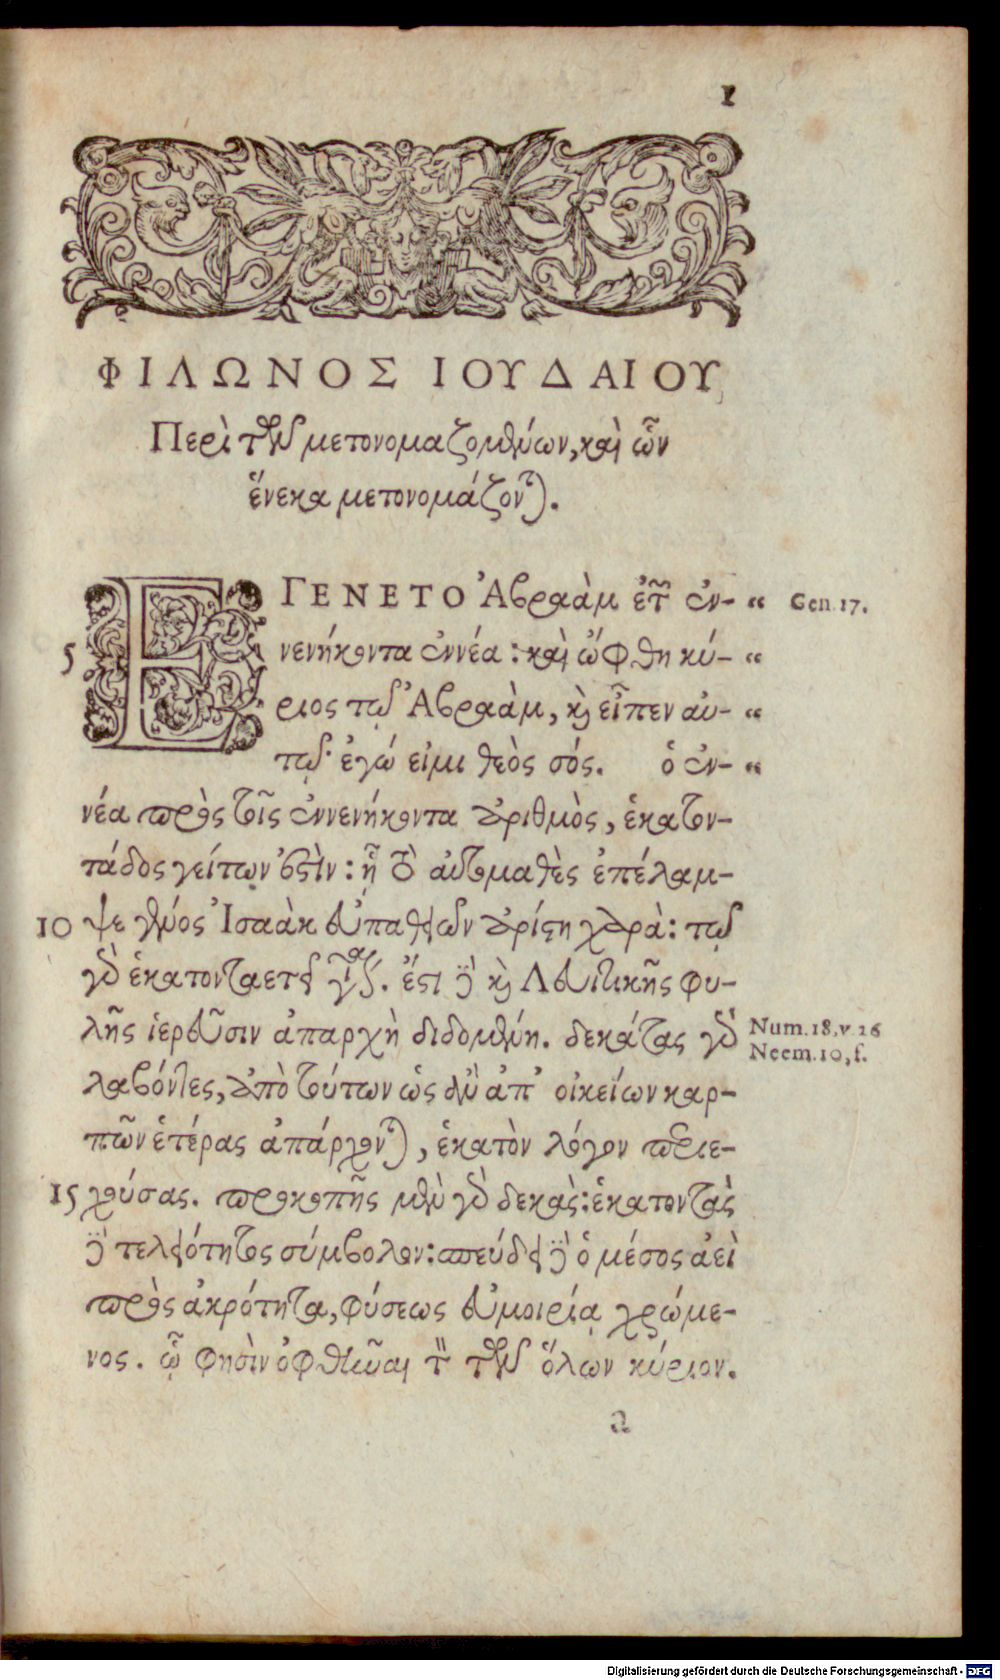 1
ΦΙΛΩΝΟΣ ΙΟΥΔΑΙΟΥ,
Περὶ τῶν μετονομαζομένων, καὶ ὧν
ἕνεκα μετονομάζονται.
ΕΓΕΝΕΤΟ Ἀβραὰμ ἐτῶν ἐν- “ Gen. 17.
5 νενήκοντα ἐννέα: καὶ ὤφθη κύ- “
ριος τῷ Ἀβραὰμ, καὶ εἶπεν αὐ- “
τῷ· ἐγώ εἰμι θεὸς σός. ὁ ἐν- “
νέα πρὸς τοῖς ἐννενήκοντα ἀριθμὸς, ἑκατον-
τάδος γείτων ἐστὶν: ᾗ τὸ αὐτομαθὲς ἐπέλαμ-
10 ψε γένος Ἰσαὰκ εὐπαθειῶν ἀρίστη χαρὰ: τῷ
γὰρ ἑκατονταετεῖ γίνεται. ἔστι δὲ καὶ Λευιτικῆς φυ-
λῆς ἱερεῦσιν ἀπαρχὴ διδομένη. δεκάτας γὰρ Num. 18, v. 26
Neem. 10, f.
λαβόντες, ἀπὸ τούτων ὡς ἂν ἀπ’ οἰκείων καρ-
πῶν ἑτέρας ἀπάρχονται, ἑκατὸν λόγον περιε-
15 χούσας. προκοπῆς μὲν γὰρ δεκὰς: ἑκατοντὰς
δὲ τελειότητος σύμβολον: σπεύδει δὲ ὁ μέσος ἀεὶ
πρὸς ἀκρότητα, φύσεως εὐμοιρίᾳ χρώμε-
νος. ᾧ φησὶν ὀφθῆναι τὸν τῶν ὅλων κύριον.
a
Digitalisierung gefördert durch die Deutsche Forschungsgemeinschaft - DFG